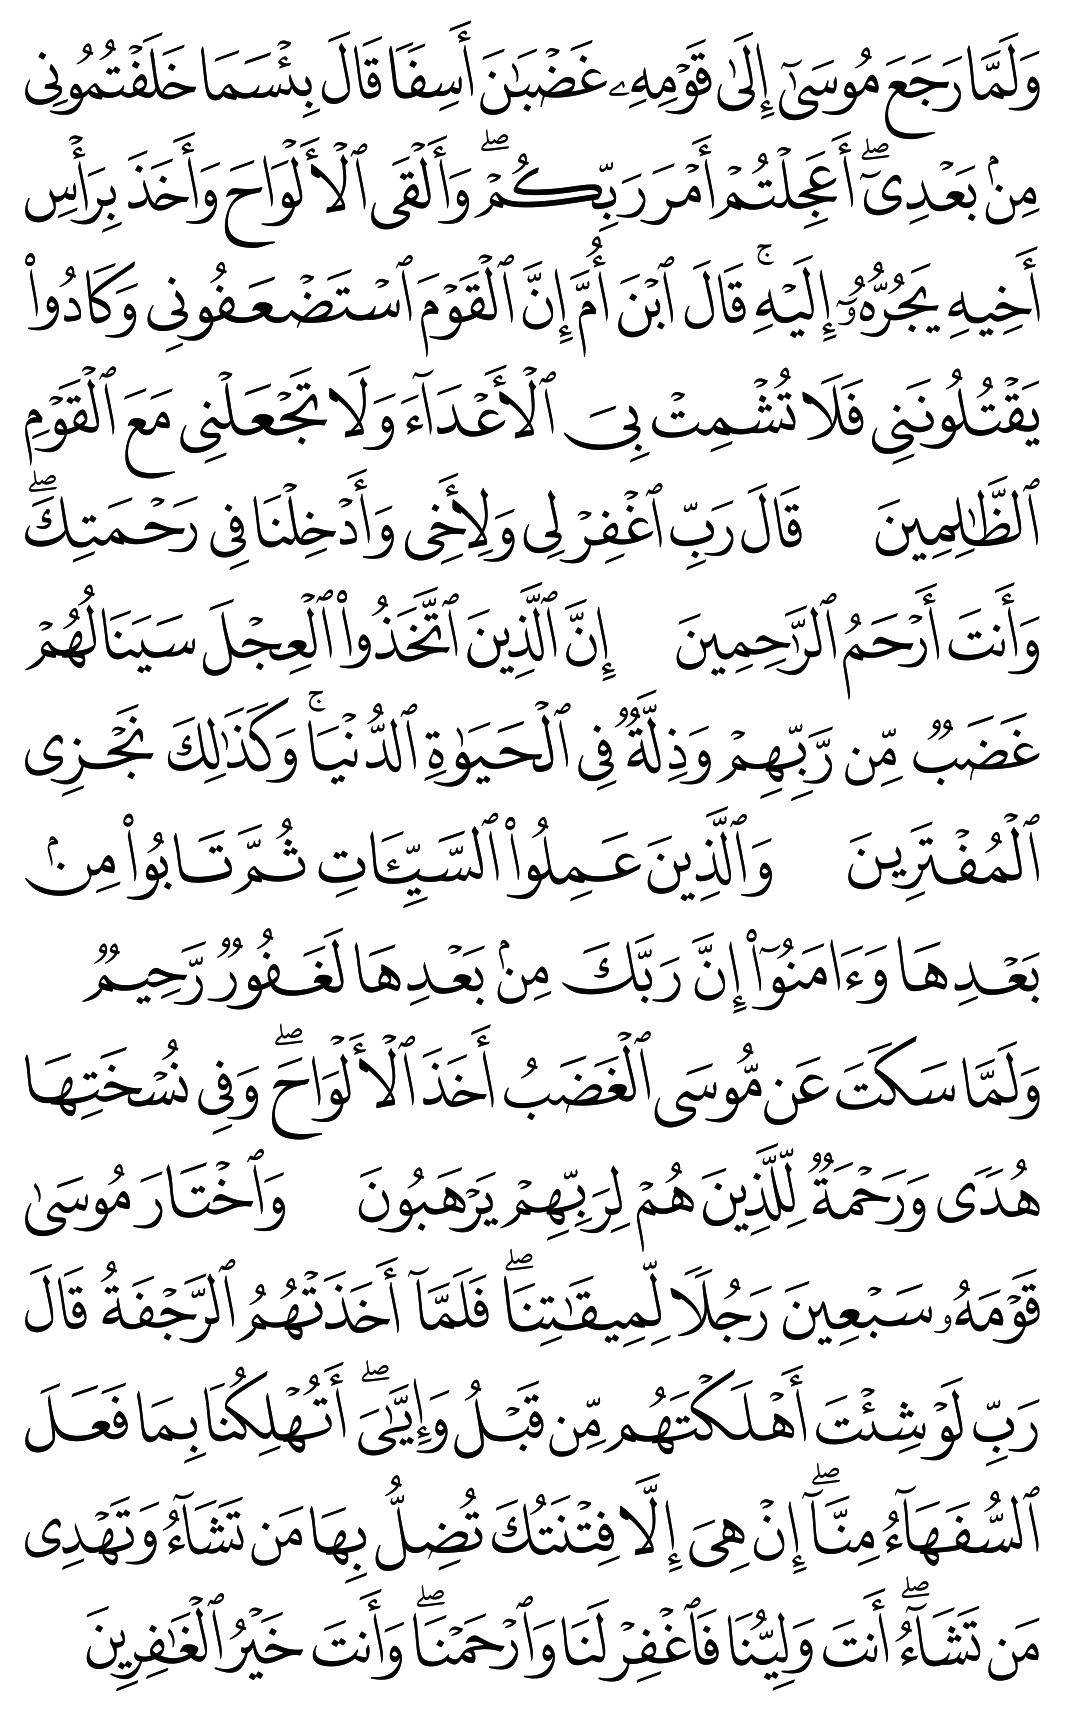 وَلَمَّا رَجَعَ مُوسَىٰٓ إِلَىٰ قَوْمِهِۦ غَضْبَـٰنَ أَسِفًا قَالَ بِئْسَمَا خَلَفْتُمُونِى
مِنۢ بَعْدِىٓ ۖ أَعَجِلْتُمْ أَمْرَ رَبِّكُمْ ۖ وَأَلْقَى ٱلْأَلْوَاحَ وَأَخَذَ بِرَأْسِ
أَخِيهِ يَجُرُّهُۥٓ إِلَيْهِ ۚ قَالَ ٱبْنَ أُمَّ إِنَّ ٱلْقَوْمَ ٱسْتَضْعَفُونِى وَكَادُوا۟
يَقْتُلُونَنِى فَلَا تُشْمِتْ بِىَ ٱلْأَعْدَآءَ وَلَا تَجْعَلْنِى مَعَ ٱلْقَوْمِ
ٱلظَّـٰلِمِينَ قَالَ رَبِّ ٱغْفِرْ لِى وَلِأَخِى وَأَدْخِلْنَا فِى رَحْمَتِكَ ۖ
وَأَنتَ أَرْحَمُ ٱلرَّٰحِمِينَ إِنَّ ٱلَّذِينَ ٱتَّخَذُوا۟ ٱلْعِجْلَ سَيَنَالُهُمْ
غَضَبٌ مِّن رَّبِّهِمْ وَذِلَّةٌ فِى ٱلْحَيَوٰةِ ٱلدُّنْيَا ۚ وَكَذَٰلِكَ نَجْزِى
ٱلْمُفْتَرِينَ وَٱلَّذِينَ عَمِلُوا۟ ٱلسَّيِّـَٔاتِ ثُمَّ تَابُوا۟ مِنۢ
بَعْدِهَا وَءَامَنُوٓا۟ إِنَّ رَبَّكَ مِنۢ بَعْدِهَا لَغَفُورٌ رَّحِيمٌ
وَلَمَّا سَكَتَ عَن مُّوسَى ٱلْغَضَبُ أَخَذَ ٱلْأَلْوَاحَ ۖ وَفِى نُسْخَتِهَا
هُدًى وَرَحْمَةٌ لِّلَّذِينَ هُمْ لِرَبِّهِمْ يَرْهَبُونَ وَٱخْتَارَ مُوسَىٰ
قَوْمَهُۥ سَبْعِينَ رَجُلًا لِّمِيقَـٰتِنَا ۖ فَلَمَّآ أَخَذَتْهُمُ ٱلرَّجْفَةُ قَالَ
رَبِّ لَوْ شِئْتَ أَهْلَكْتَهُم مِّن قَبْلُ وَإِيَّـٰىَ ۖ أَتُهْلِكُنَا بِمَا فَعَلَ
ٱلسُّفَهَآءُ مِنَّآ ۖ إِنْ هِىَ إِلَّا فِتْنَتُكَ تُضِلُّ بِهَا مَن تَشَآءُ وَتَهْدِى
مَن تَشَآءُ ۖ أَنتَ وَلِيُّنَا فَٱغْفِرْ لَنَا وَٱرْحَمْنَا ۖ وَأَنتَ خَيْرُ ٱلْغَـٰفِرِينَ